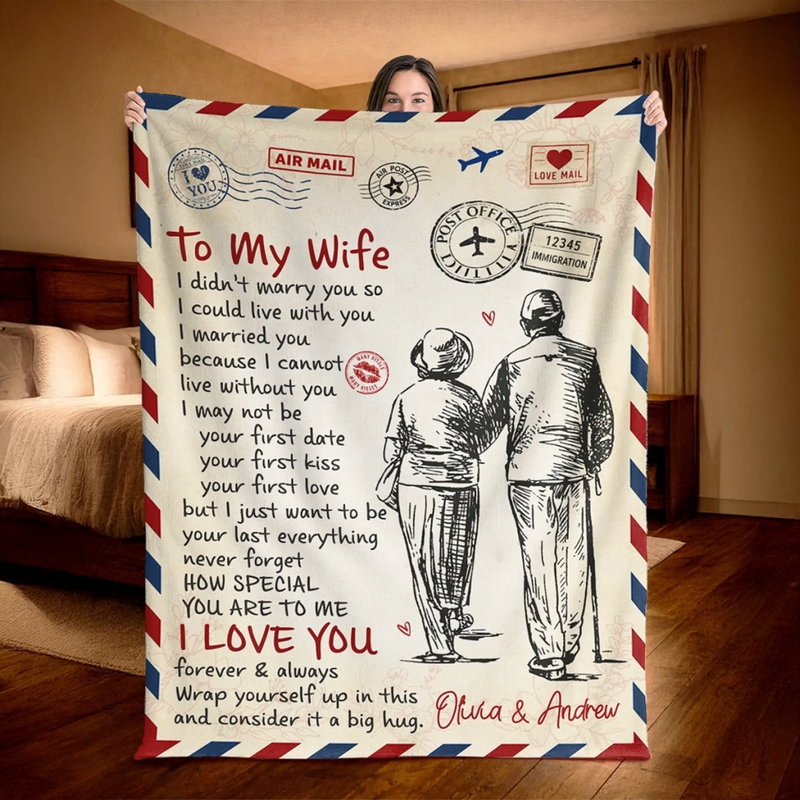 I
YOU
AIR MAIL
AIR POST
EXPRESS
LOVE MAIL
POST OFFICE
12345
IMMIGRATION
To My Wife
I didn't marry you so
I could live with you
I married you
because I cannot
MANY KISSES
MANY KISSES
live without you
I may not be
your first date
your first kiss
your first love
but I just want to be
your last everything
never forget
HOW SPECIAL
YOU ARE TO ME
I LOVE YOU
forever & always
Wrap yourself up in this
and consider it a big hug.
Olivia & Andrew